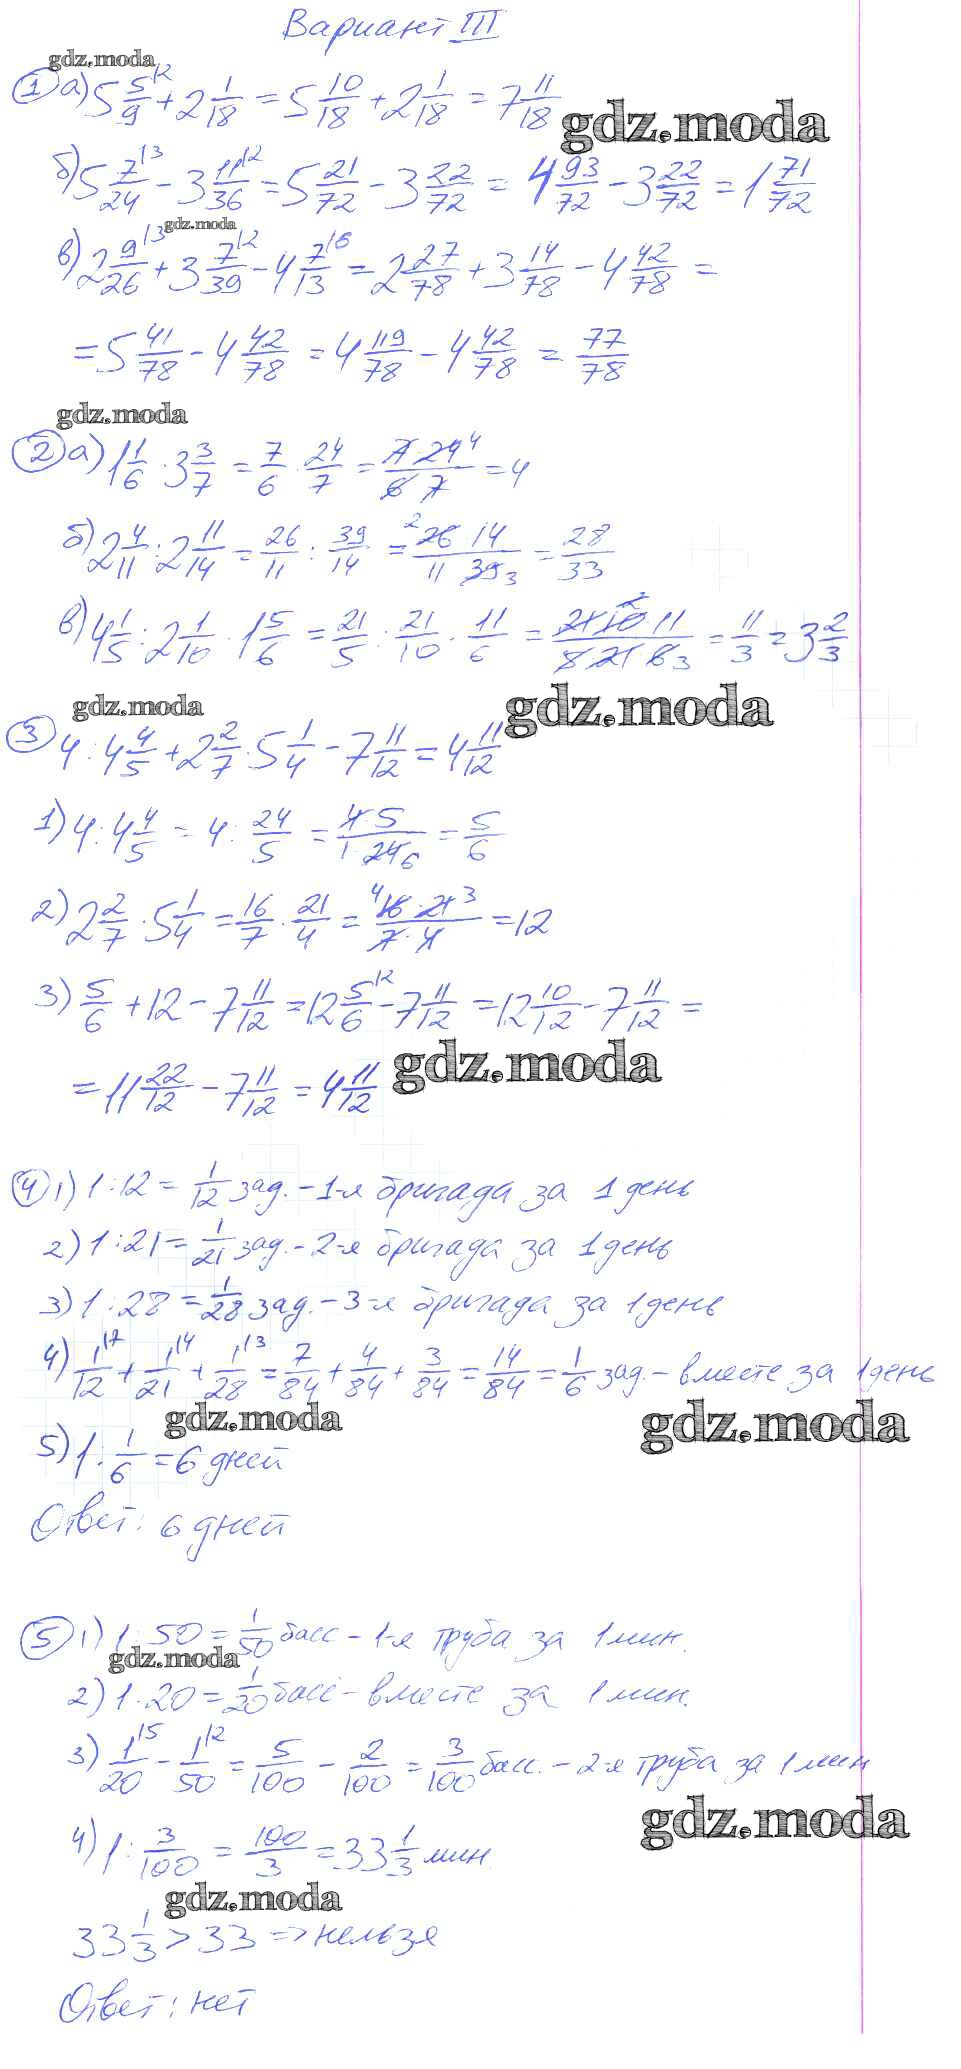 Вариант III
gdz.moda
① а) 5 5/9 + 2 1/18 = 5 10/18 + 2 1/18 = 7 11/18
gdz.moda
б) 5 7/24 - 3 11/36 = 5 21/72 - 3 22/72 = 4 93/72 - 3 22/72 = 1 71/72
gdz.moda
в) 2 9/26 + 3 7/39 - 4 7/13 = 2 27/78 + 3 14/78 - 4 42/78 =
= 5 41/78 - 4 42/78 = 4 119/78 - 4 42/78 = 77/78
gdz.moda
② а) 1 1/6 · 3 3/7 = 7/6 · 24/7 = 7·24/6·7 = 4
б) 2 4/11 : 2 11/14 = 26/11 : 39/14 = 26·14/11·39 = 28/33
в) 4 1/5 : 2 1/10 · 1 5/6 = 21/5 : 21/10 · 11/6 = 21·10·11/5·21·6 = 11/3 = 3 2/3
gdz.moda
gdz.moda
③ 4 : 4 4/5 + 2 2/7 · 5 1/4 - 7 11/12 = 4 11/12
1) 4 : 4 4/5 = 4 : 24/5 = 4·5/1·24 = 5/6
2) 2 2/7 · 5 1/4 = 16/7 · 21/4 = 16·21/7·4 = 12
3) 5/6 + 12 - 7 11/12 = 12 5/6 - 7 11/12 = 12 10/12 - 7 11/12 =
= 11 22/12 - 7 11/12 = 4 11/12
gdz.moda
④ 1) 1 : 12 = 1/12 зад. - 1-я бригада за 1 день
2) 1 : 21 = 1/21 зад. - 2-я бригада за 1 день
3) 1 : 28 = 1/28 зад. - 3-я бригада за 1 день
4) 1/12 + 1/21 + 1/28 = 7/84 + 4/84 + 3/84 = 14/84 = 1/6 зад. - вместе за 1 день
gdz.moda
gdz.moda
5) 1 : 1/6 = 6 дней
Ответ: 6 дней
⑤ 1) 1 : 50 = 1/50 басс - 1-я труба за 1 мин.
gdz.moda
2) 1 : 20 = 1/20 басс - вместе за 1 мин.
3) 1/20 - 1/50 = 5/100 - 2/100 = 3/100 басс. - 2-я труба за 1 мин
gdz.moda
4) 1 : 3/100 = 100/3 = 33 1/3 мин.
gdz.moda
33 1/3 > 33 => нельзя
Ответ: нет